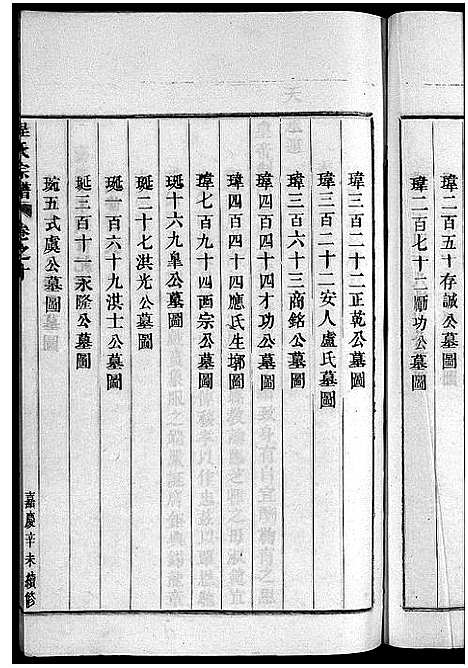 瑋二百五十存誠公墓圖
瑋二百七十二勵功公墓圖
瑋三百二十二正乾公墓圖
瑋三百二十二安人盧氏墓圖
瑋三百六十三商銘公墓圖
瑋四百四十四才功公墓圖
瑋四百四十四應氏生墎圖
瑋七百九十四西宗公墓圖
珽十六九阜公墓圖
珽二十七洪光公墓圖
珽一百六十九淇士公墓圖
珽三百十一永隆公墓圖
琬五式虞公墓圖
氏宗譜 卷之十
嘉慶辛未續修